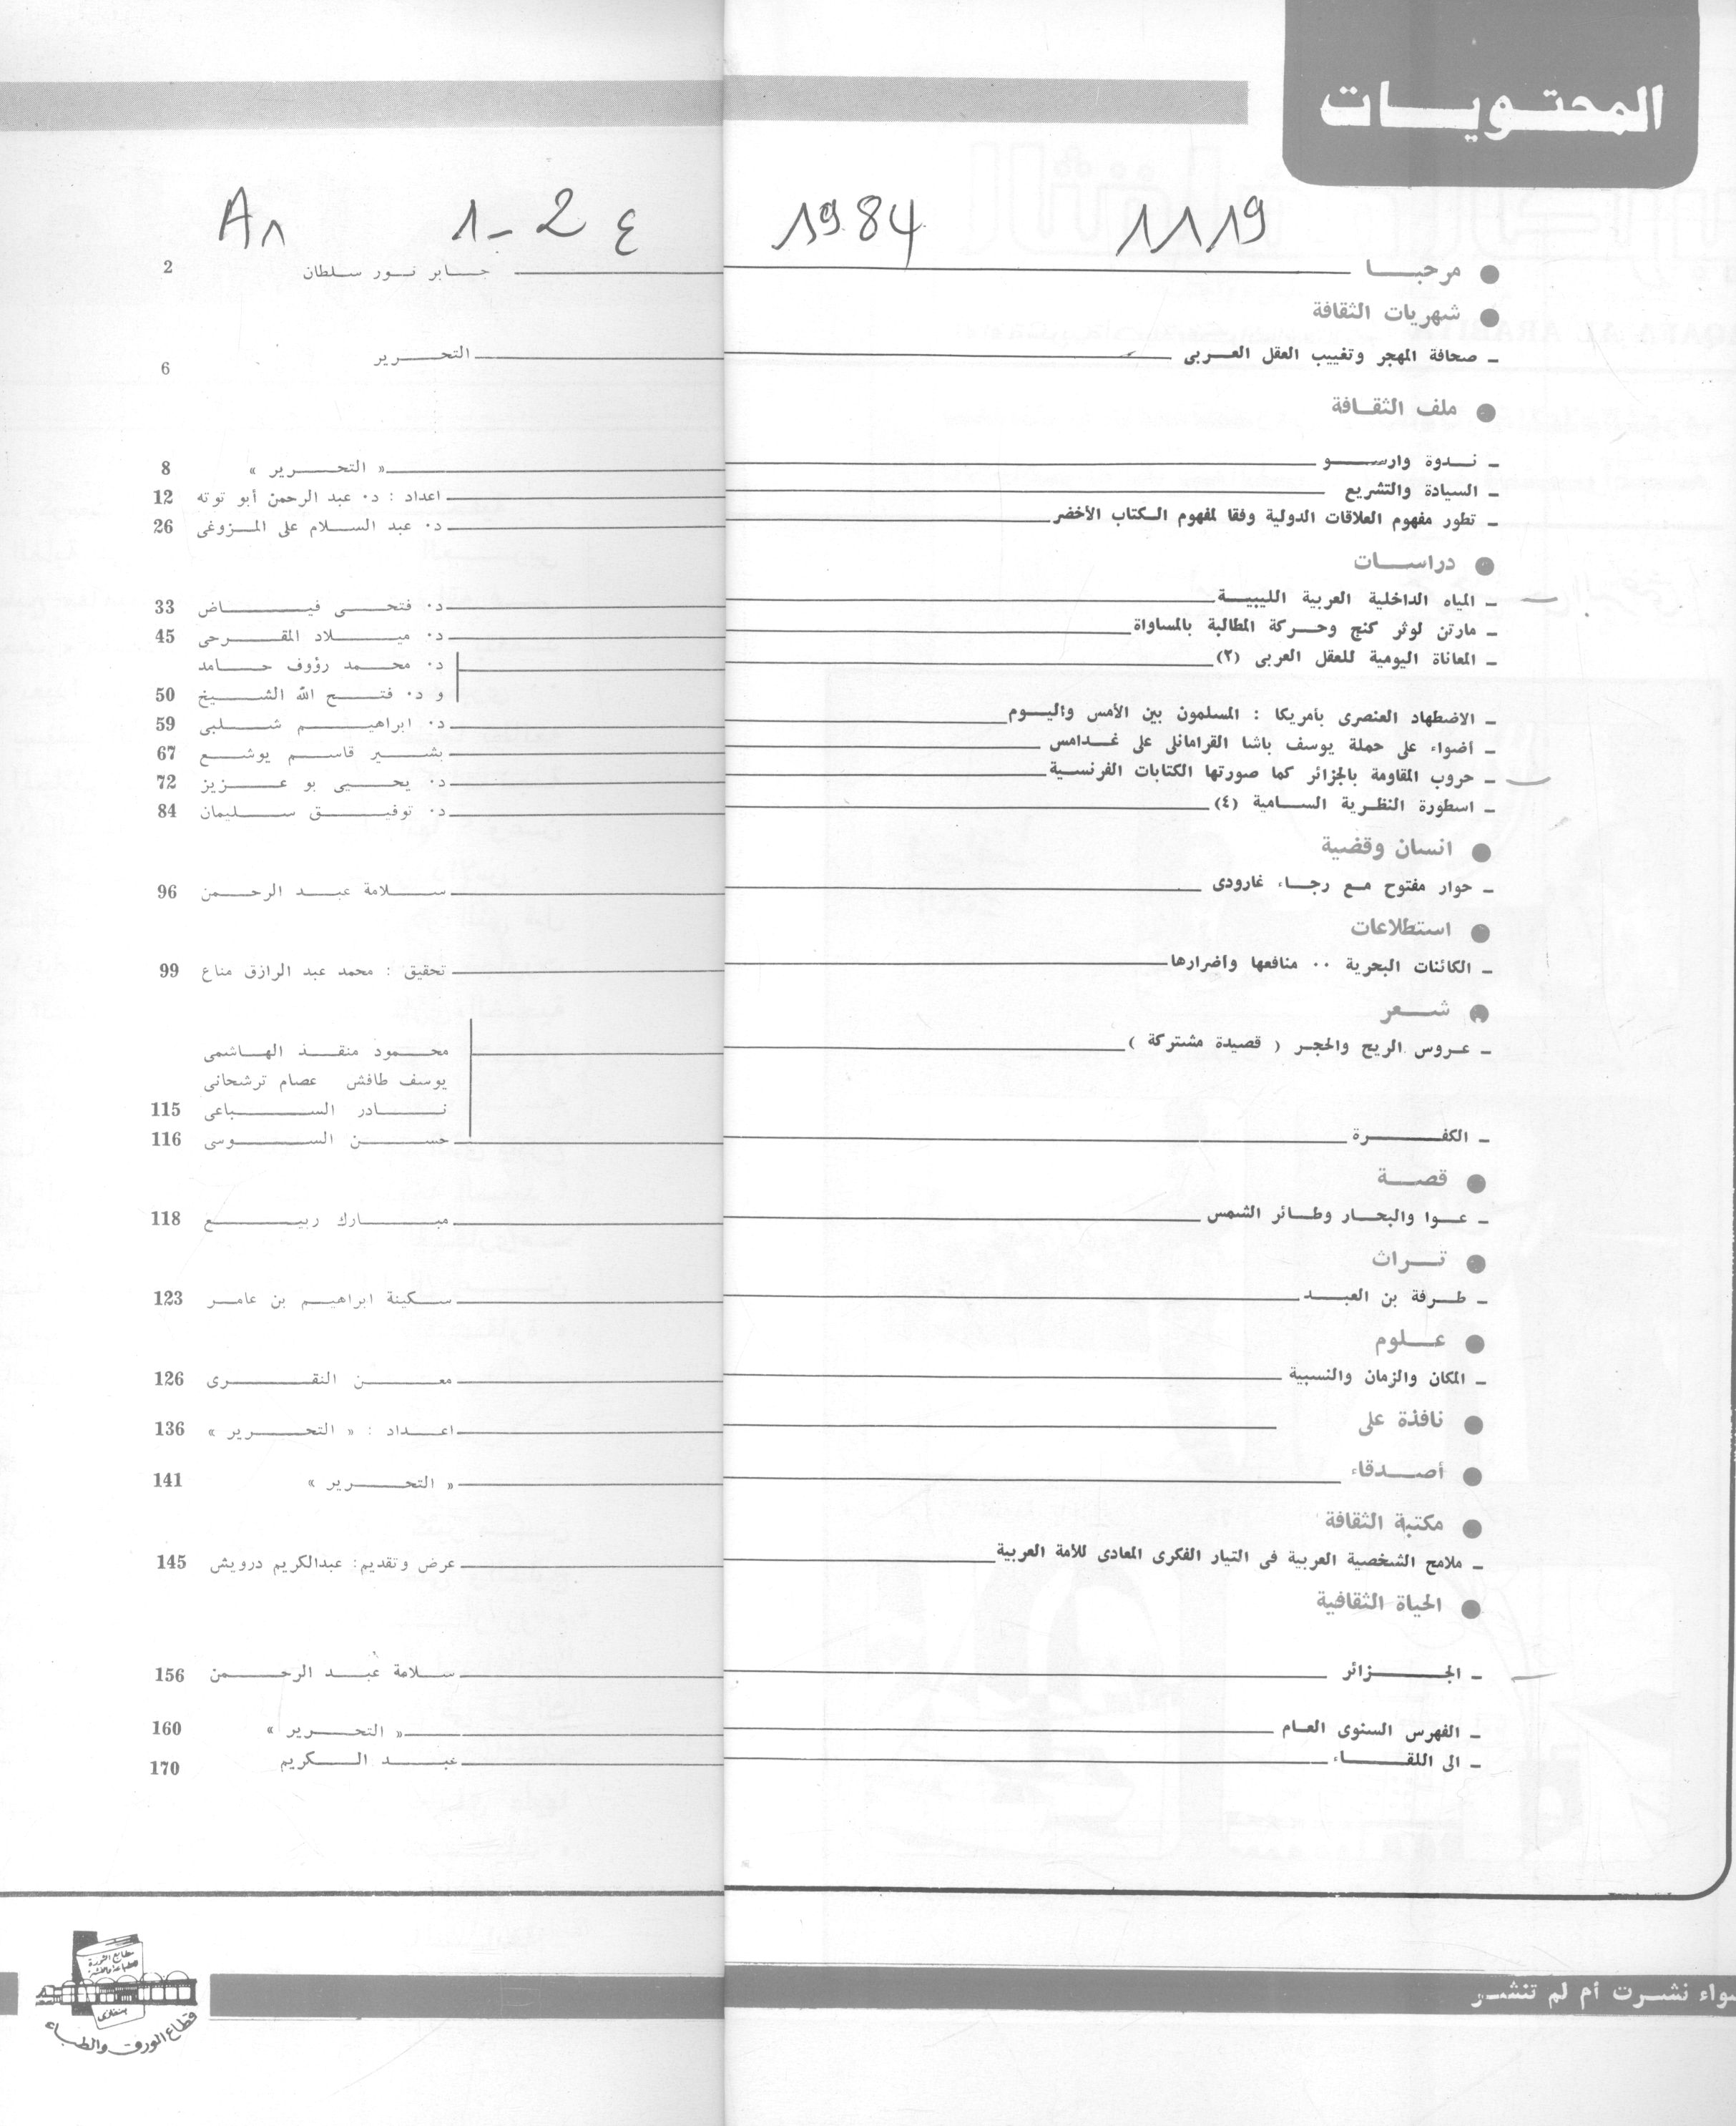 المحتويات
1119 1984 ع 1-2 A1
● مرحبا جابر نور سلطان 2
● شهريات الثقافة
ـ صحافة المهجر وتغييب العقل العربى التحرير 6
● ملف الثقافة
ـ ندوة وارسو « التحرير » 8
ـ السيادة والتشريع اعداد : د. عبد الرحمن أبو توته 12
ـ تطور مفهوم العلاقات الدولية وفقا لمفهوم الكتاب الأخضر د. عبد السلام على المزوغى 26
● دراسات
ـ المياه الداخلية العربية الليبية د. فتحى فياض 33
ـ مارتن لوثر كنج وحركة المطالبة بالمساواة د. ميلاد المقرحى 45
ـ المعاناة اليومية للعقل العربى (٢) د. محمد رؤوف حامد
و د. فتح الله الشيخ 50
ـ الاضطهاد العنصرى بأمريكا : المسلمون بين الأمس واليوم د. ابراهيم شلبى 59
ـ أضواء على حملة يوسف باشا القرامانلى على غدامس بشير قاسم يوشع 67
ـ حروب المقاومة بالجزائر كما صورتها الكتابات الفرنسية د. يحيى بو عزيز 72
ـ اسطورة النظرية السامية (٤) د. توفيق سليمان 84
● انسان وقضية
ـ حوار مفتوح مع رجاء غارودى سلامة عبد الرحمن 96
● استطلاعات
ـ الكائنات البحرية .. منافعها واضرارها تحقيق : محمد عبد الرازق مناع 99
● شعر
ـ عروس الريح والحجر ( قصيدة مشتركة ) محمود منقذ الهاشمى
يوسف طافش عصام ترشحانى
نادر السباعى 115
ـ الكفرة حسن السوسى 116
● قصة
ـ عوا والبحار وطائر الشمس مبارك ربيع 118
● تراث
ـ طرفة بن العبد سكينة ابراهيم بن عامر 123
● علوم
ـ المكان والزمان والنسبية معن النقرى 126
● نافذة على اعداد : « التحرير » 136
● أصدقاء « التحرير » 141
● مكتبة الثقافة
ـ ملامح الشخصية العربية فى التيار الفكرى المعادى للأمة العربية عرض وتقديم: عبدالكريم درويش 145
● الحياة الثقافية
ـ الجزائر سلامة عبد الرحمن 156
ـ الفهرس السنوى العام « التحرير » 160
ـ الى اللقاء عبد الكريم 170
سواء نشرت أم لم تنشر
مطابع الثورة
للطباعة والنشر
بنغازى
قطاع الورق والطباعة